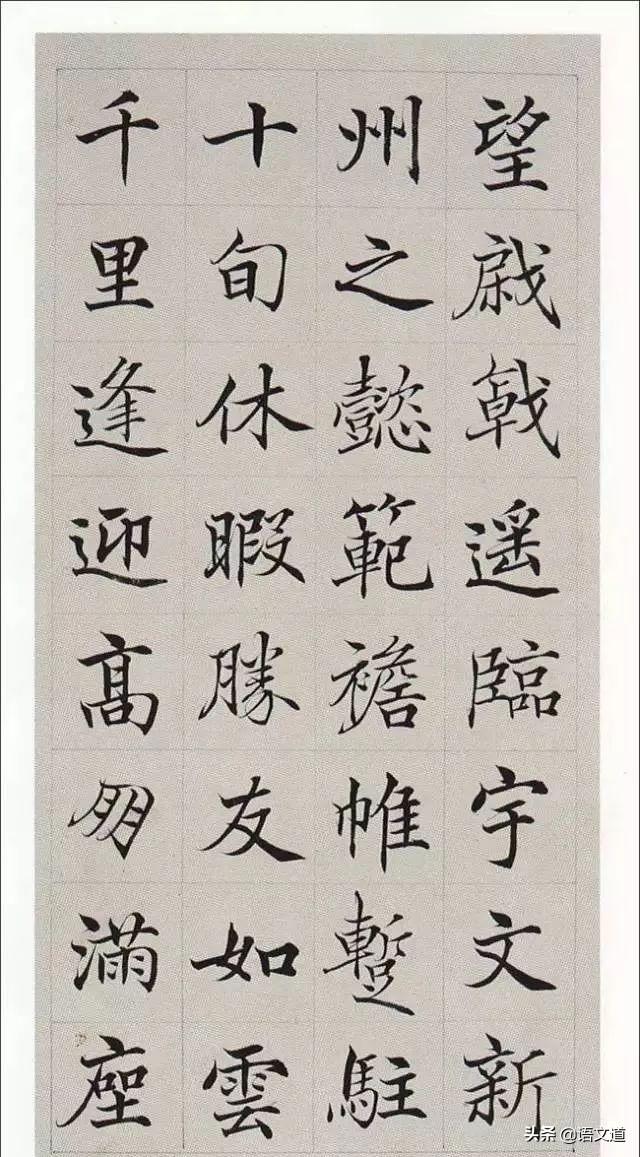 望戚戟遥臨宇文新
州之懿範襜帷蹔駐
十旬休暇勝友如雲
千里逢迎髙朋滿座
头条 @语文道